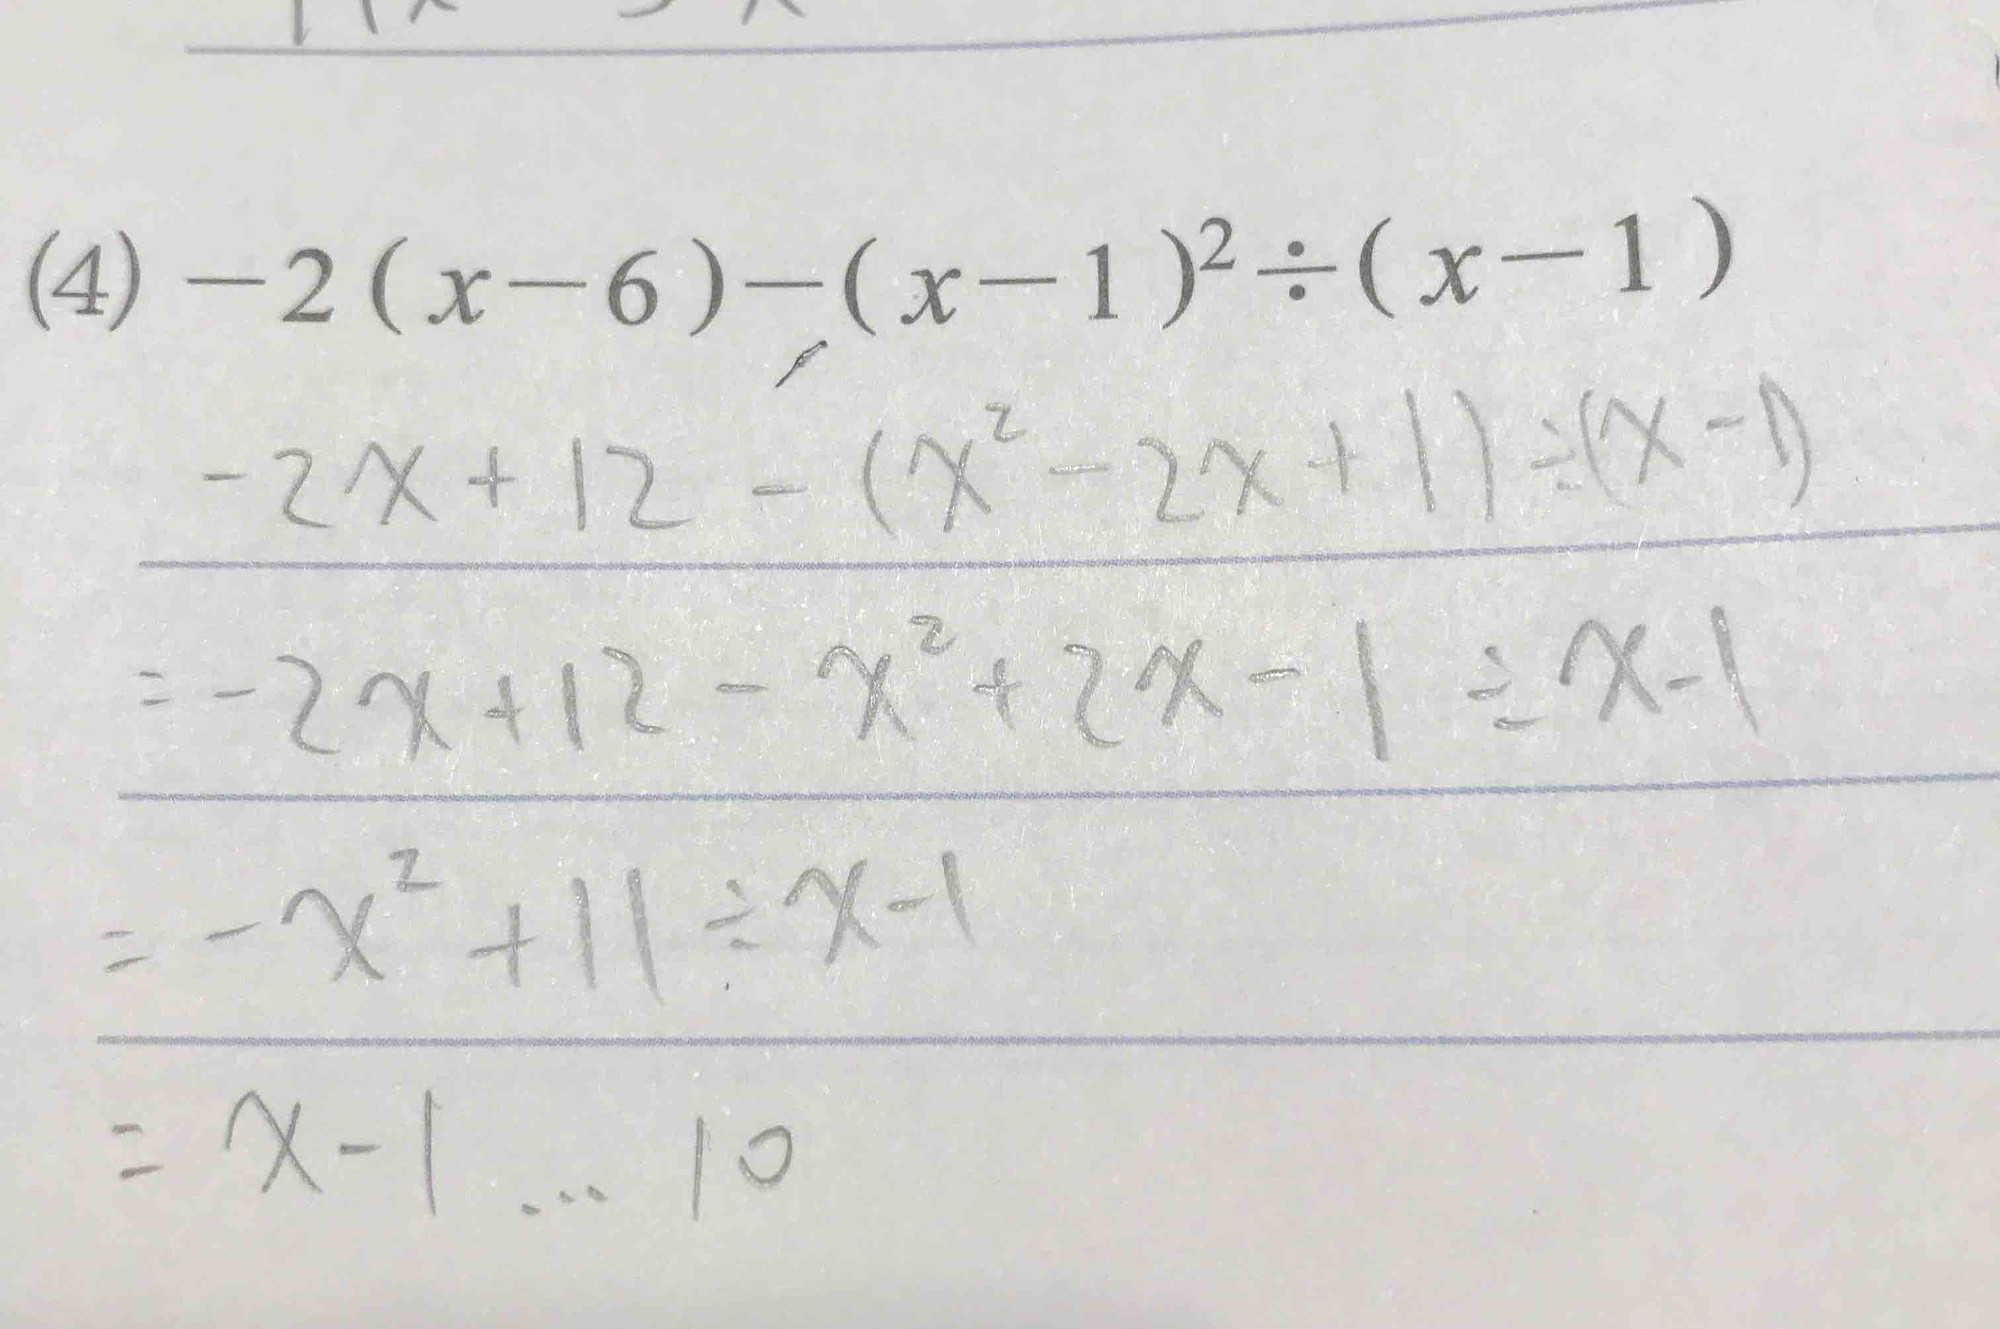 (4) −2(x−6)−(x−1)²÷(x−1)
-2x+12 - (x²-2x+1)÷(x-1)
=-2x+12-x²+2x-1÷x-1
=-x²+11÷x-1
= x-1 ... 10